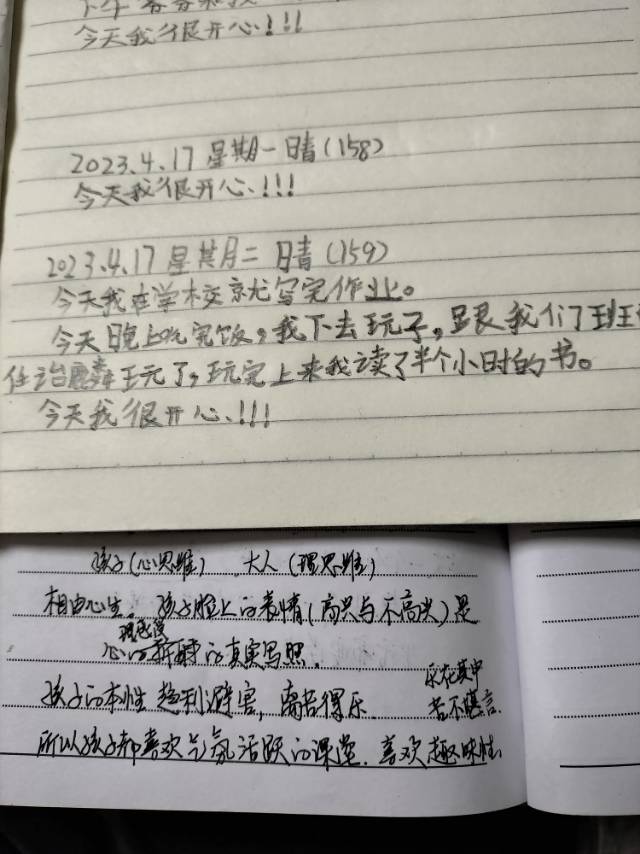 今天我很开心!!!
2023.4.17 星期一 晴(158)
今天我很开心!!!
2023.4.17 星期二 晴(159)
今天我在学校就写完作业。
今天晚上吃完饭,我下去玩了,跟我们班
任治麟玩了,玩完上来我读了半个小时的书。
今天我很开心!!!
孩子(心思维) 大人(理思维)
相由心生。孩子脸上的表情(高兴与不高兴)是
心的 的真实写照.
乐在其中
孩子的本性 趋利避害, 离苦得乐. 苦不堪言.
所以孩子都喜欢气氛活跃的课堂. 喜欢趣味性